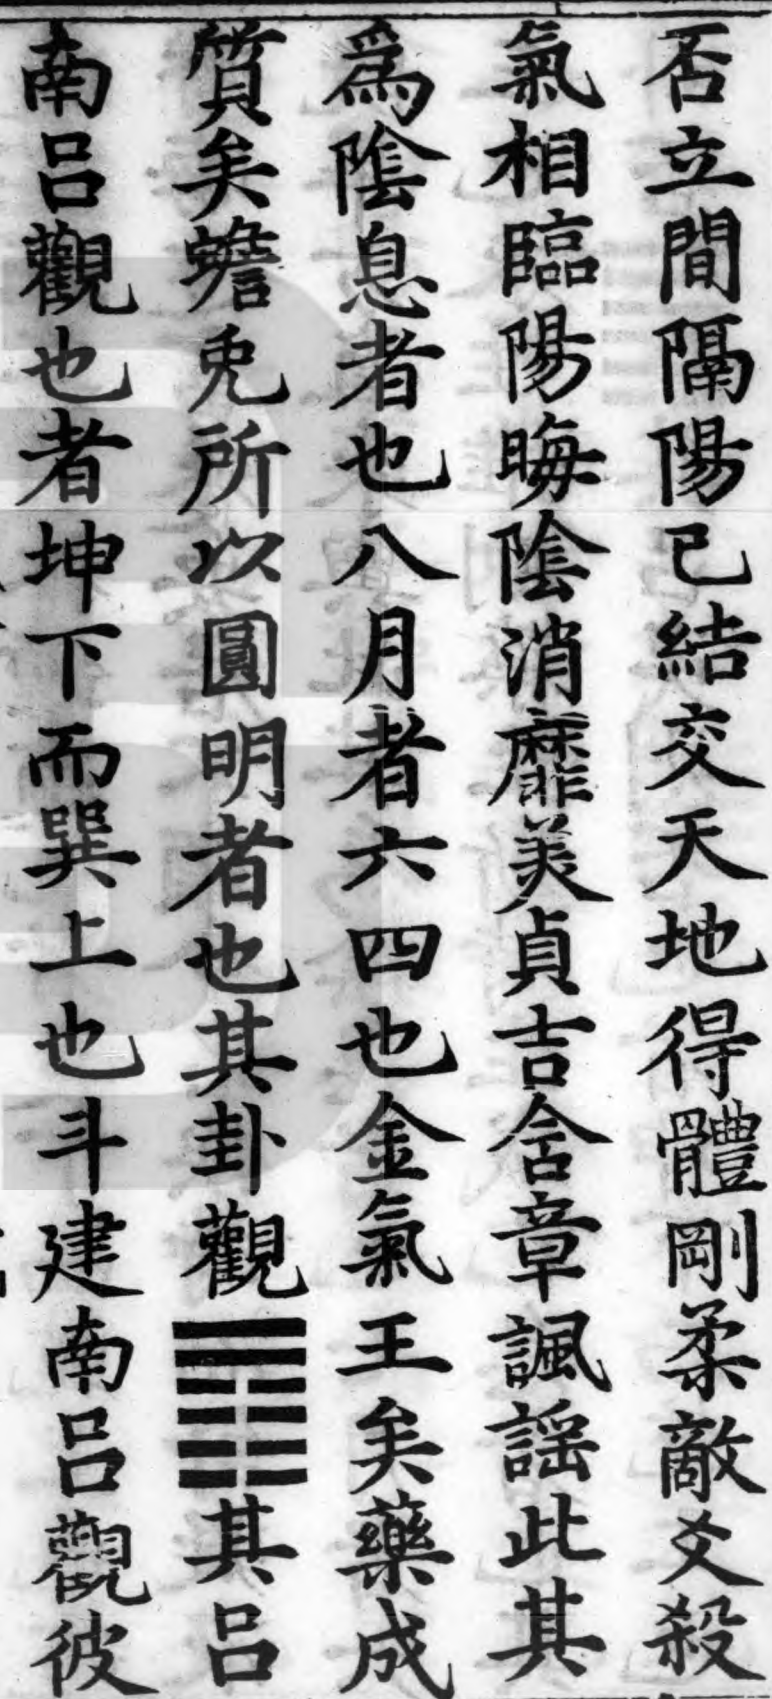 否立間隔陽已結交天地得體剛柔敵爻殺
氣相臨陽晦陰消靡美貞吉含章諷謡此其
爲陰息者也八月者六四也金氣王矣藥成
質矣蟾兎所以圓明者也其卦觀䷓其吕
南吕觀也者坤下而巽上也斗建南吕觀彼